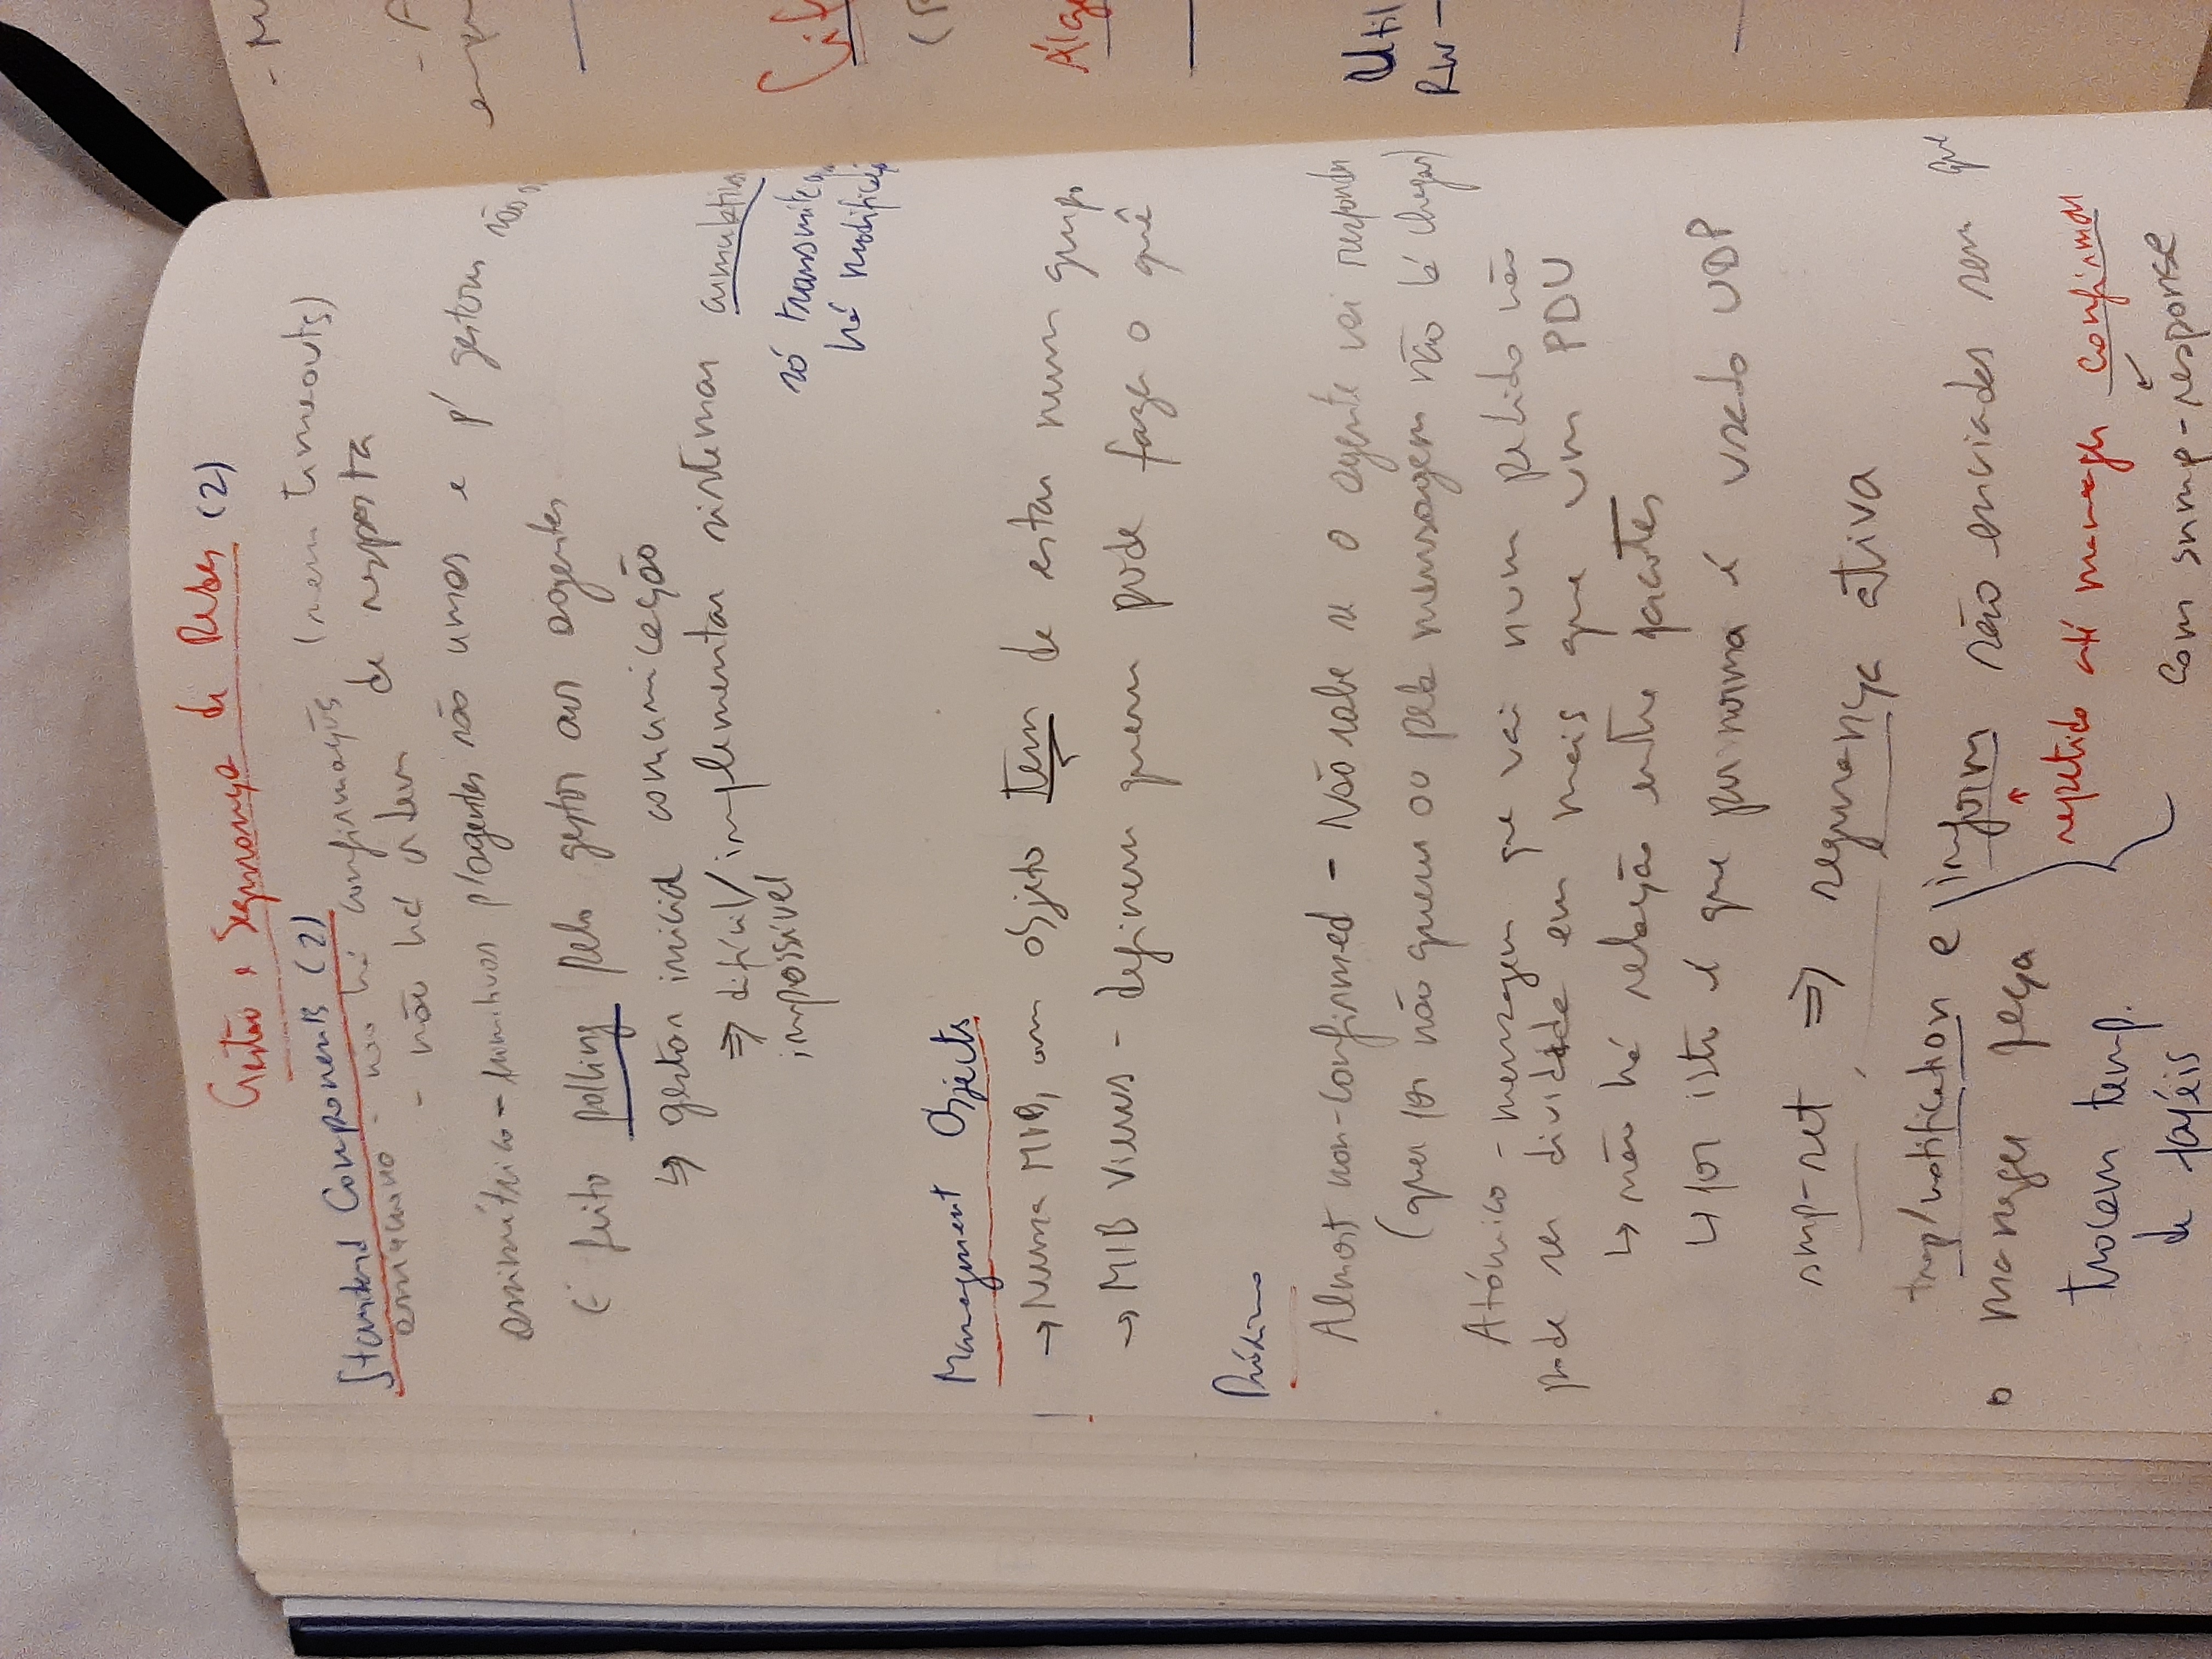 Gestão e Segurança de Redes (2)
Standard Components (2)
assíncrono - não há confirmações (nem timeouts)
- não há ordem de resposta
assimétrico - primitivas p/ agentes são umas e p/ gestores são
É feito polling pelo gestor aos agentes
↳ gestor inicia comunicação
⇒ difícil/ implementar sistemas
impossível
só transmite
há
Management Objects
→ Numa MIB, um objeto tem de estar num grupo
→ MIB views - definem quem pode fazer o quê
Próximo
Almost non-confirmed - Não sabe se o agente vai responder
(quer por não querer ou pela mensagem não lá chegar)
Atómico - mensagem que vai num pedido não
pode ser dividida em mais que um PDU
↳ não há relação entre pacotes
↳ por isto é que por norma é usado UDP
snmp-set ⇒ segurança ativa
trap/notification e inform são enviados sem que
o manager peça
repetido até manager confirmar
trocam temp.
de papéis
com snmp-response
- A
Util
RW -